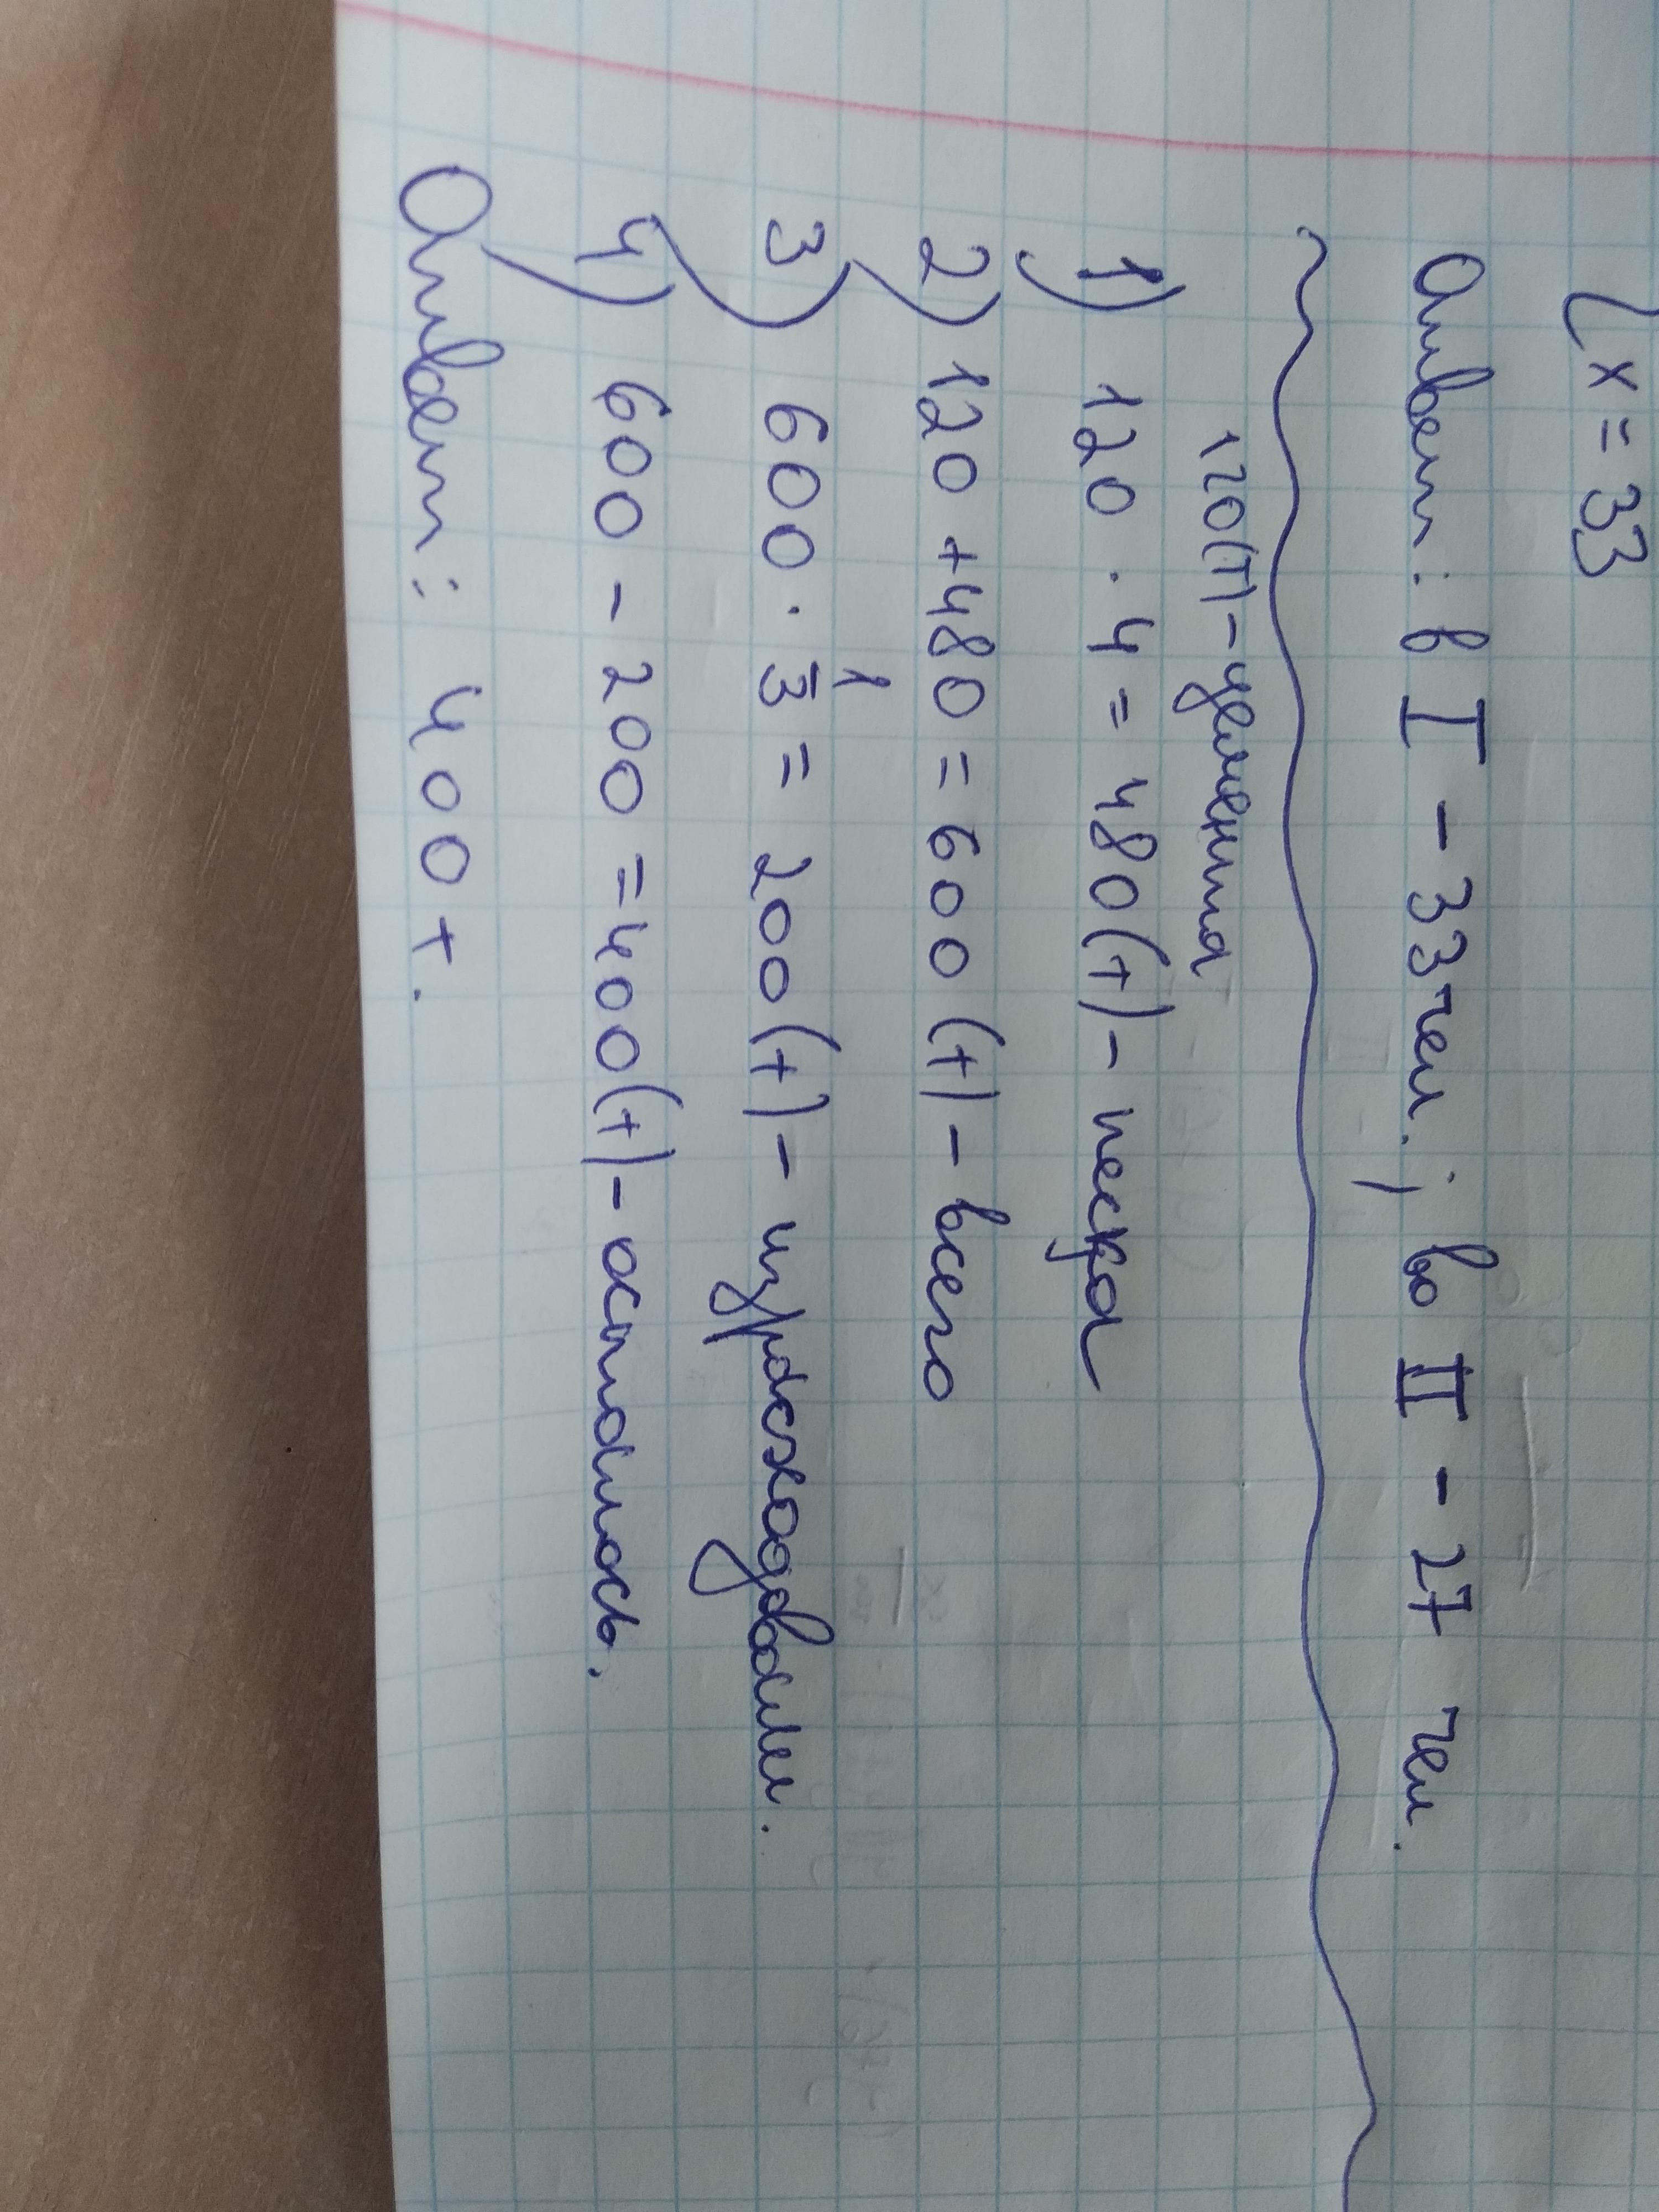 { x = 33
Ответ: в I – 33 чел.; во II – 27 чел.
120(т) – цемента
1) 120 · 4 = 480(т) – песка
2) 120 + 480 = 600 (т) – всего
3) 600 · 1/3 = 200(т) – израсходвали.
4) 600 – 200 = 400(т) – осталось.
Ответ: 400 т.